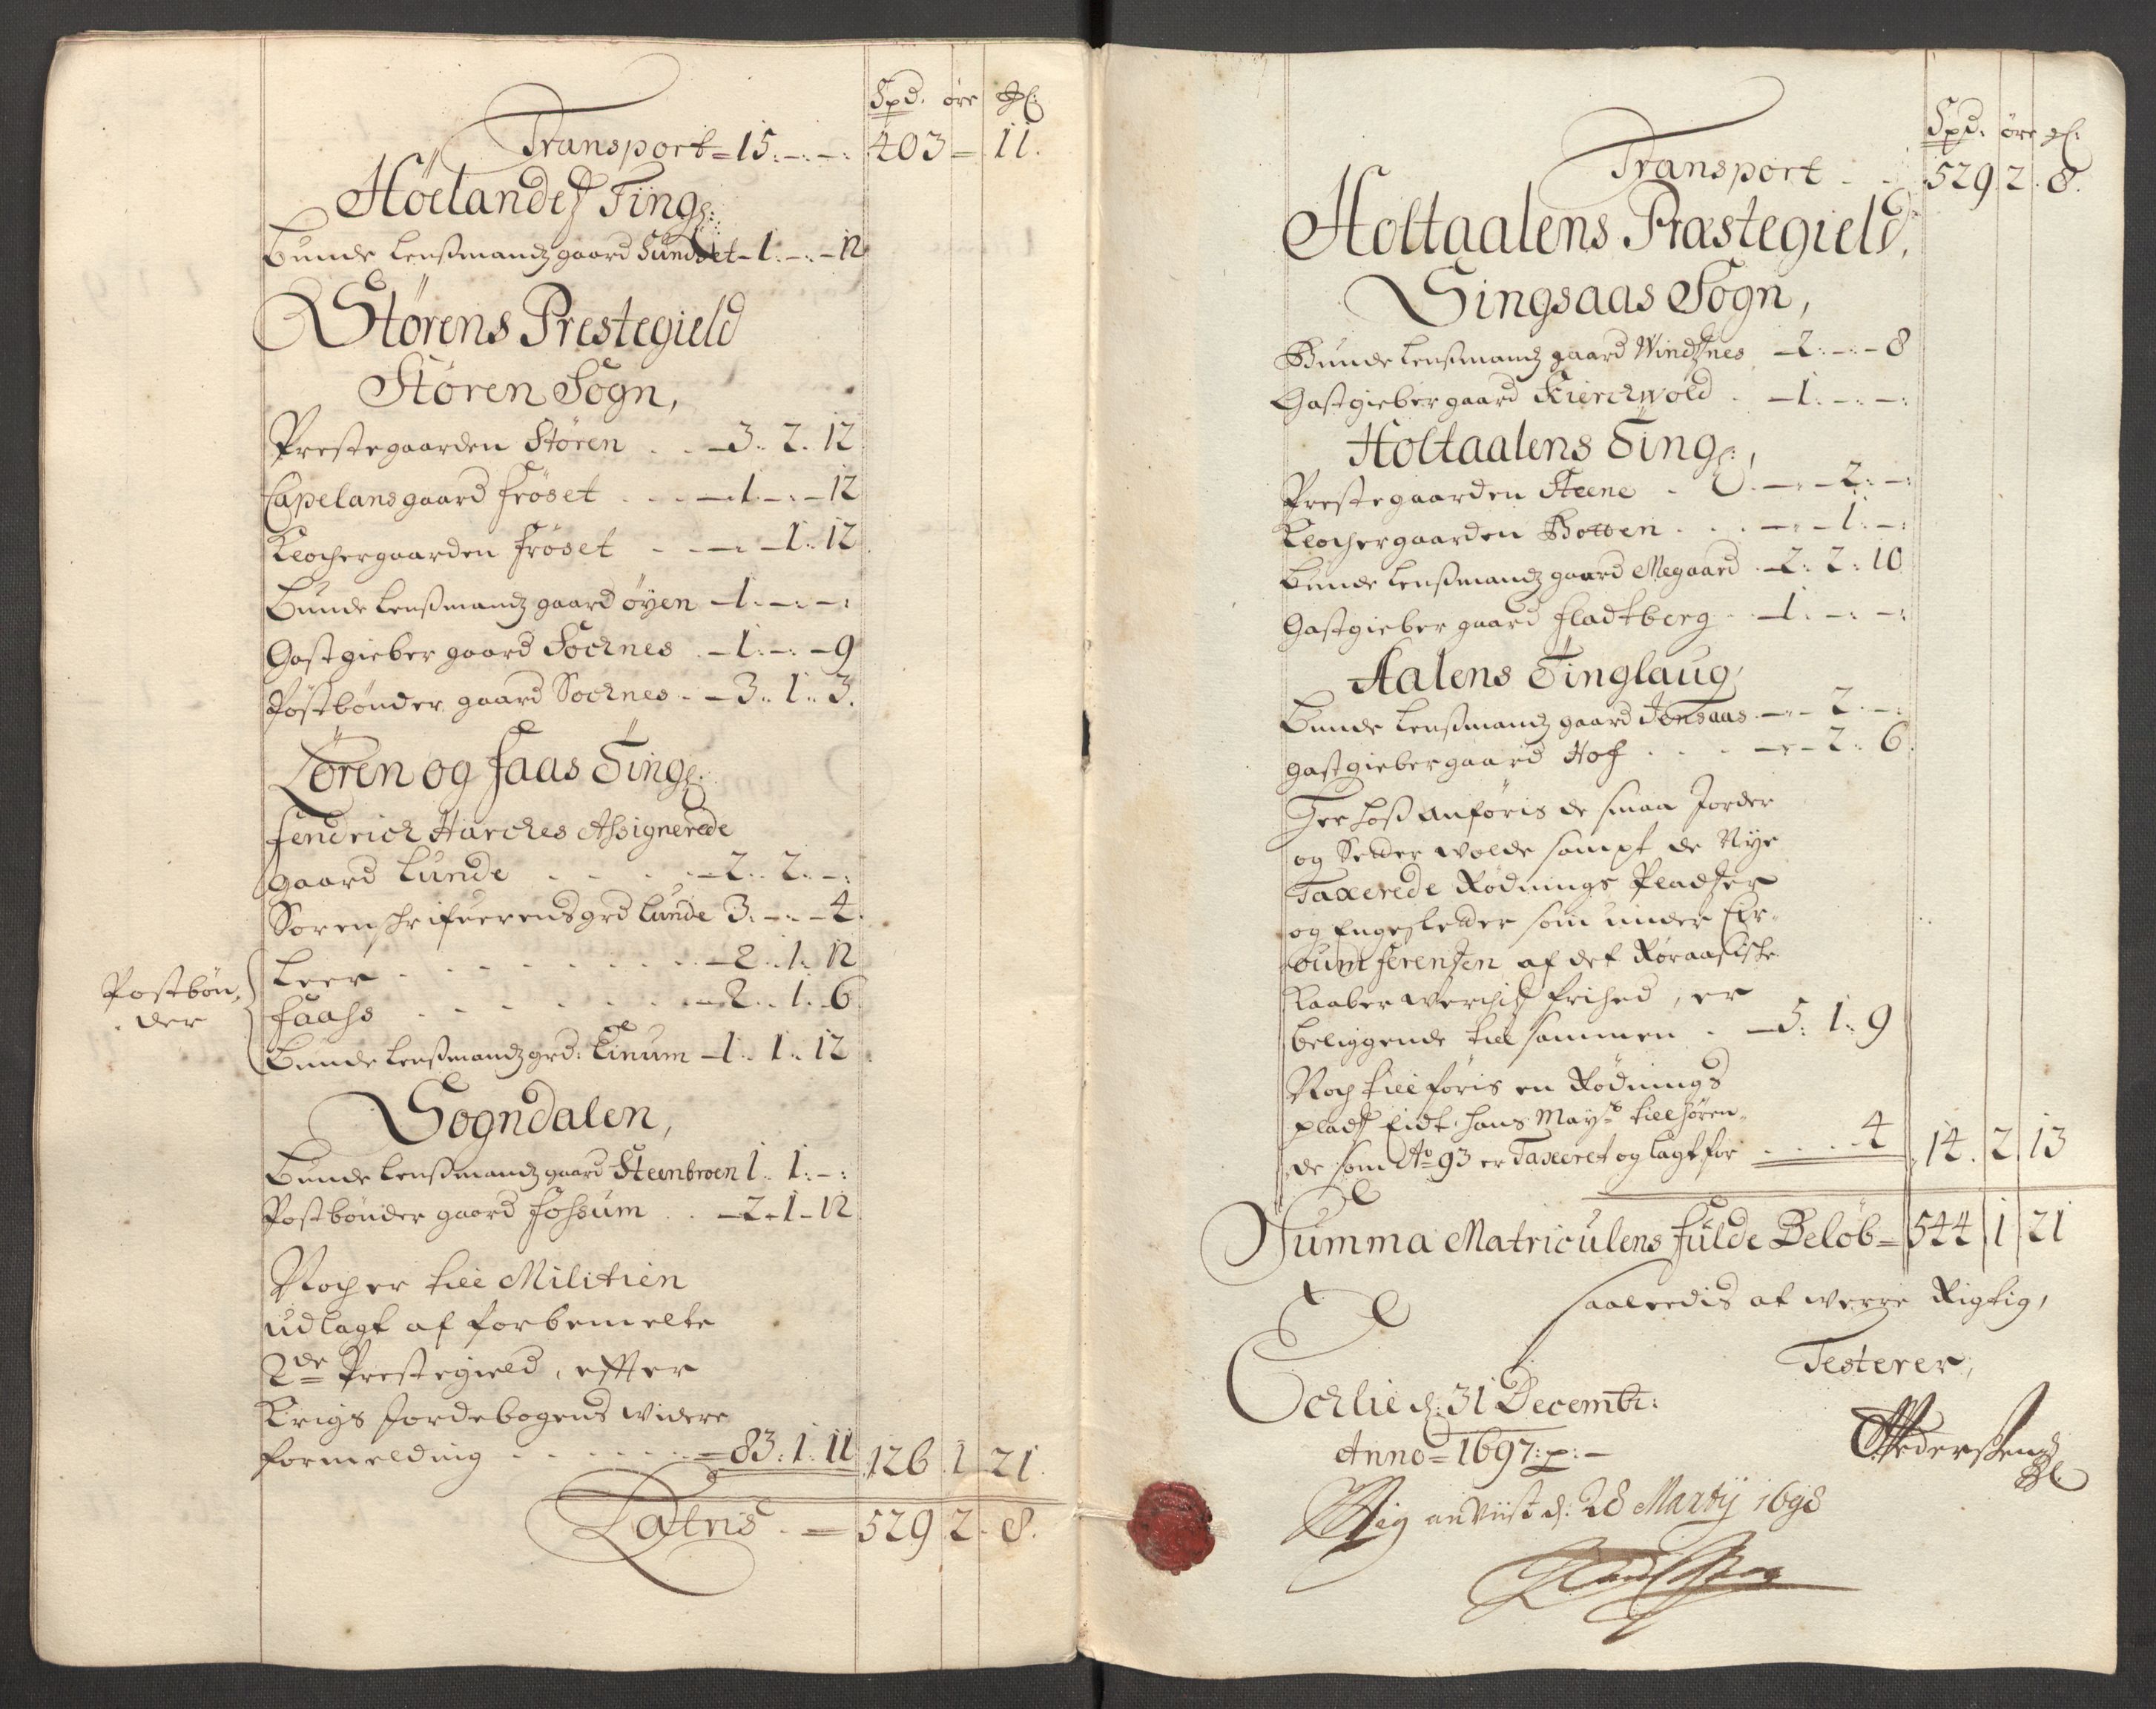 Spd. øre Ml:
Transport = 15: - : - : 403 = 11.
Höelandes Ting:
Bunde Lensmandz gaard Sundset - 1. - : - 12
Störens Prestegield
Stören Sogn,
Prestegaarden Stören . . - 3. 2. 12
Capelans gaard Fröset . . . - 1. - : - 12
Klochergaarden Fröset . . - : - 1. 12
Bunde Lensmandz gaard öyen - 1. - : - :
Gastgieber gaard Socknes . - 1. - : - 9
Postbönder gaard Socknes . - 3. 1. 3.
Lören og Faas Ting:
Fendrick Harckes Assignerede
gaard Lunde . . . . - 2. 2. - :
Sorenschrifuerens grd Lunde 3. - . - 4.
Postbön,
der
Leer . . . . . . . - 2. 1. 12
Faass . . . . . . - 2. 1. 6
Bunde Lensmandz grd: Einum - 1. 1. 12
Sogndalen,
Bunde Lensmandz gaard Steenbroen 1. 1. - :
Postbönder gaard Fossum . . - 2. 1. 12
Noch er till Militien
udlagt af forbemelte
2de Prestegield, effter
Krigs Jordebogens widere
formelding . . . . . . = 83. 1. 11 126. 1 21.
Latris . = 529 2. 8.
Spd. øre Ml:
Transport . . 529. 2. 8.
Holtaalens Præstegield,
Singsaas Sogn,
Bunde Lensmandz gaard Windsnes - 2. - : - 8
Gastgieber gaard Kierckwold . - 1. - : - :
Holtaalens Ting:,
Prestegaarden Steene . . - : - 2. - :
Klochergaarden Botten . . . - : - 1. - :
Bunde Lensmandz gaard Megaard - 2. 2. 10
Gastgieber gaard Fladtberg . . - 1. - : - :
Aalens Tinglaug,
Bunde Lensmandz gaard Jensaas . - : - 2. - :
Gastgieber gaard Hof . . . - : - 2. 6.
Her hoss anföris de smaa Jorder
og Setter wolde sampt de Nye
Taxerede Rödnings Pladser
og Engesletter som under Cir-
cumferensen af det Röraasiske
Kaaber werchis frihed, er
beliggende till sammen . - 5. 1. 9
Noch till föris en Rödnings
plads Eidt, hans Mayts tillhören-
de som Ao 93 er Taxeret og lagt for . . . . 4 14. 2. 13
Summa Matriculens fulde Belöb = 544. 1. 21
saaledis at were Rigtig,
Testerer,
Echlie d: 31 Decembr:
Anno = 1697: p: -
Pedersen
Rig anviist d: 28 Martij 1698